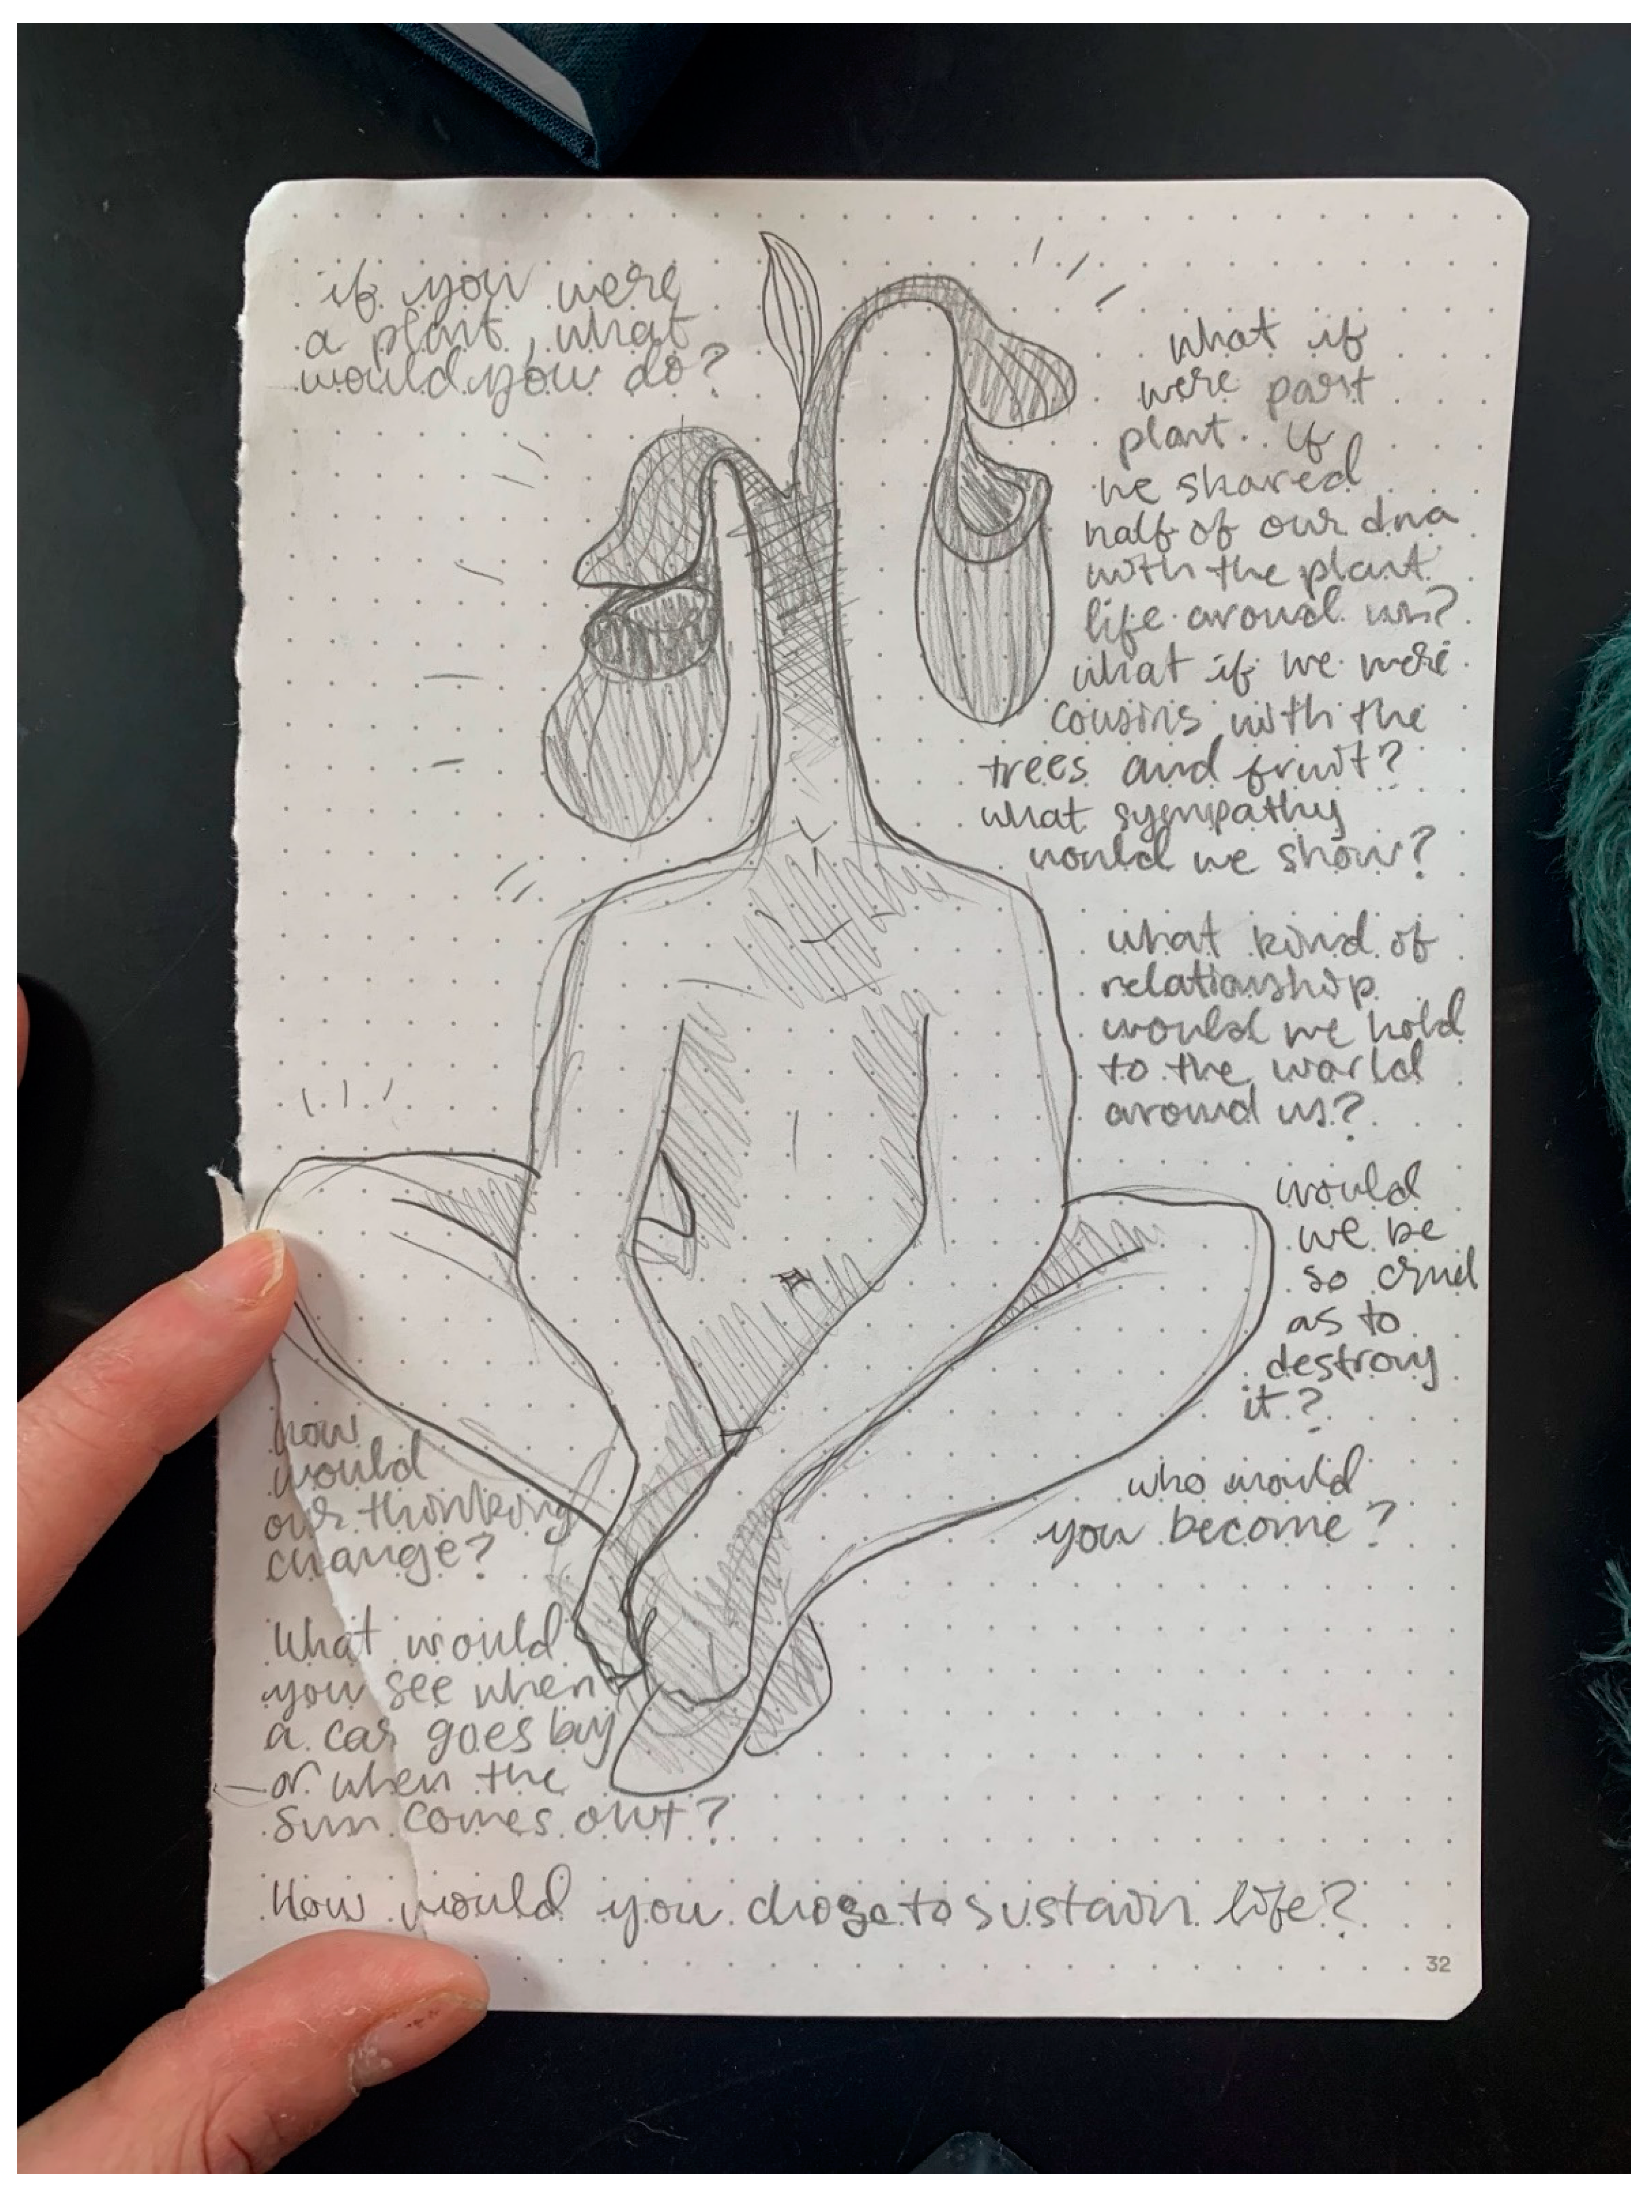 if you were
a plant, what
would you do?
what if
were part
plant.. if
we shared
half of our dna
with the plant
life around us?
what if we were
cousins with the
trees and fruit?
what sympathy
would we show?
what kind of
relationship
would we hold
to the world
around us?
would
we be
so cruel
as to
destroy
it?
who would
you become?
how
would
our thinking
change?
What would
you see when
a car goes by
or when the
sun comes out?
How would you chose to sustain life?
32